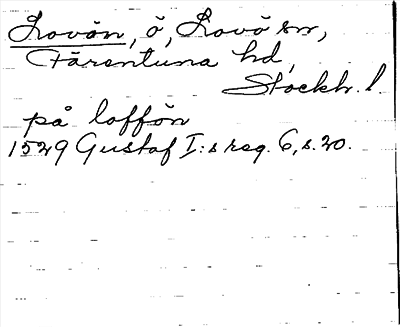 Lovön, ö, Lovö sn,
Färentuna hd,
Stockh. l.
på loffön
1529 Gustaf I:s reg. 6, s. 20.